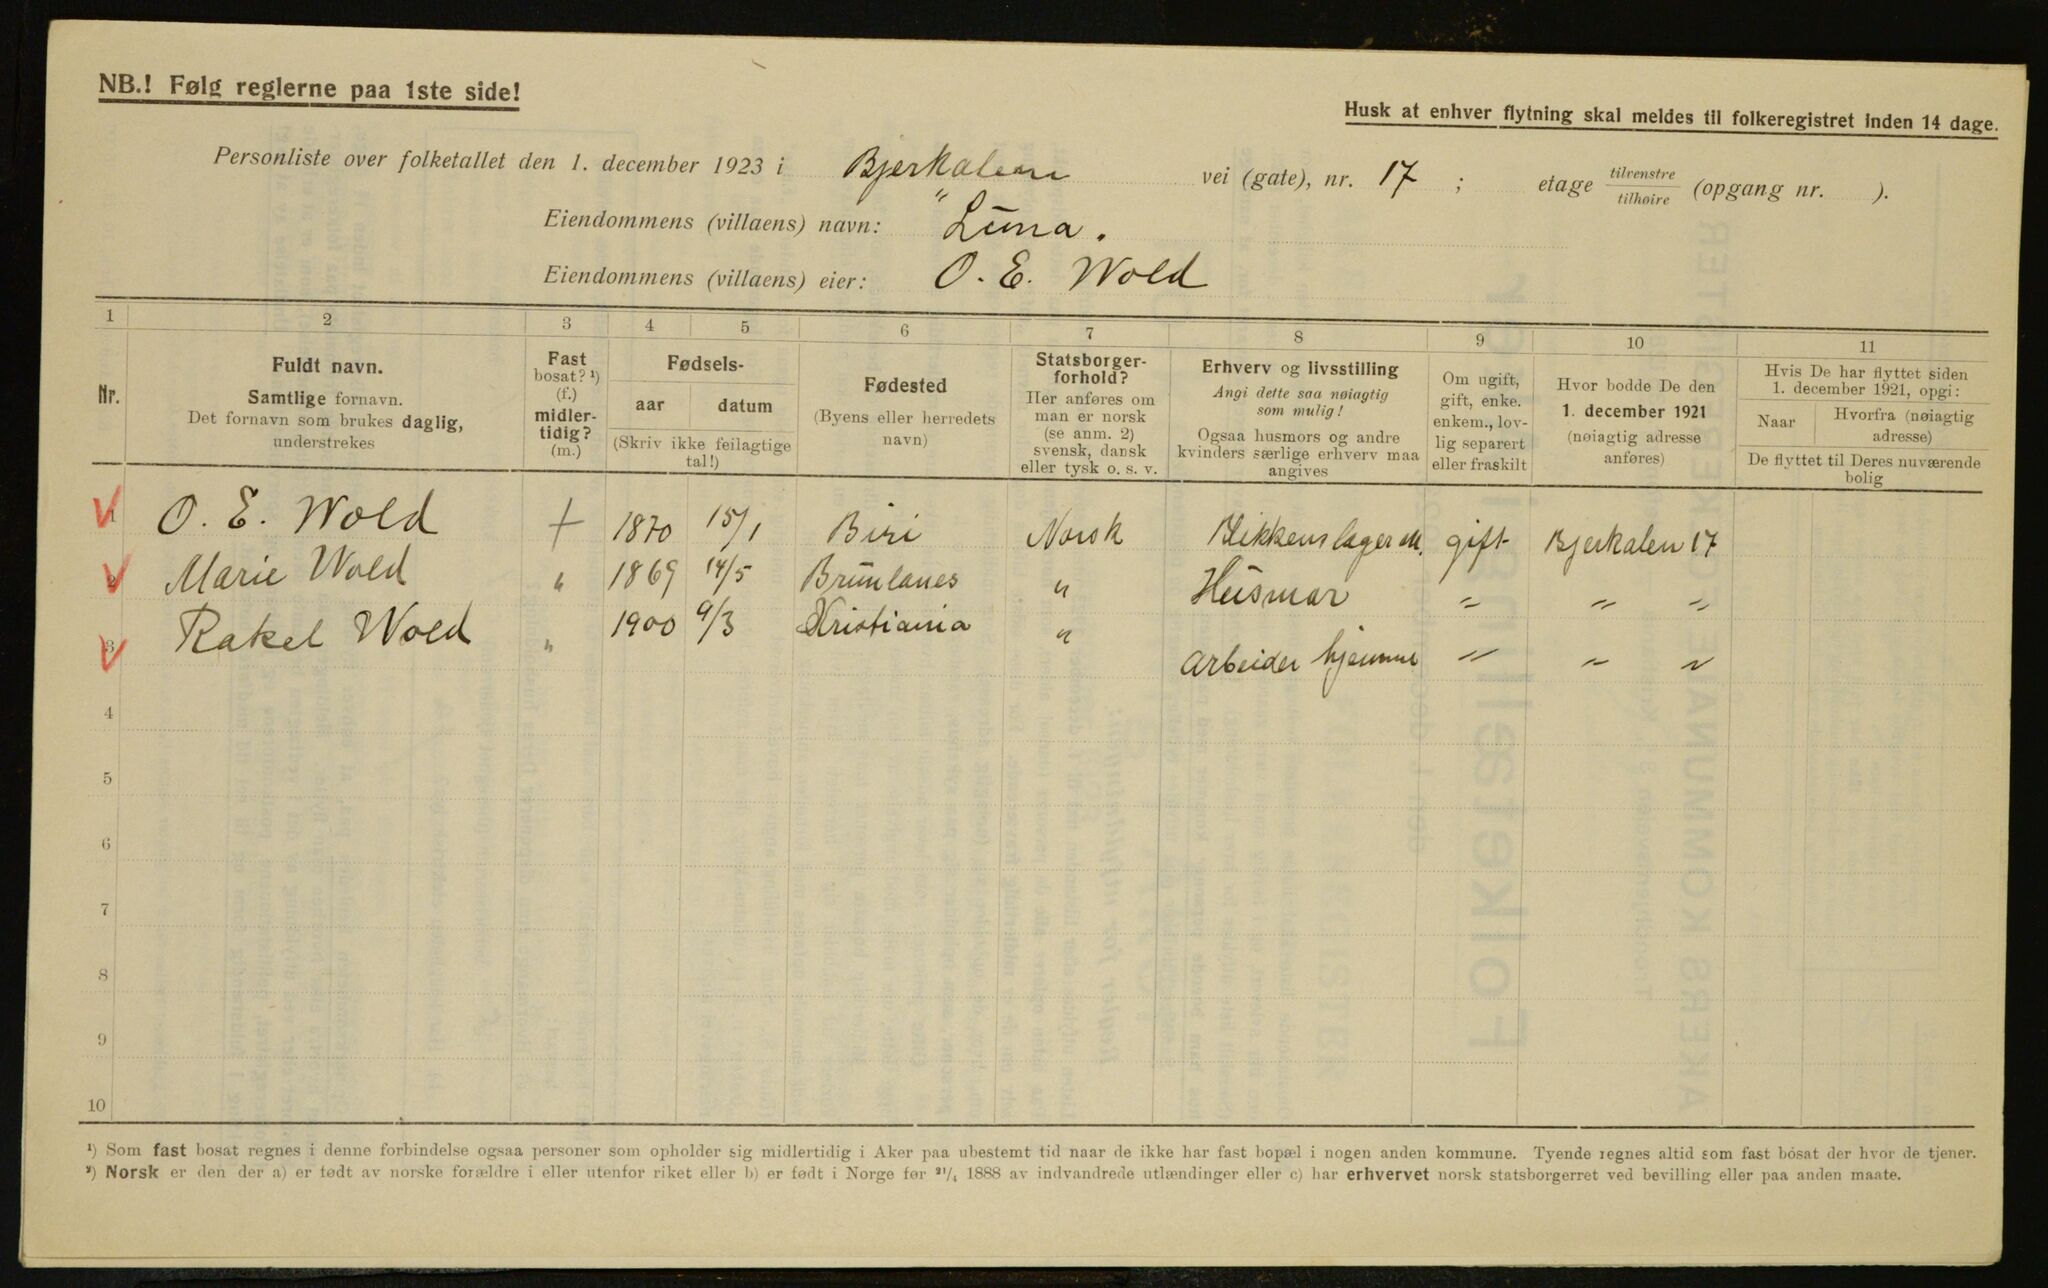 NB.! Følg reglerne paa 1ste side!
Husk at enhver flytning skal meldes til folkeregistret inden 14 dage.
Personliste over folketallet den 1. december 1923 i Bjerkaleen vei (gate), nr. 17 ; etage tilvenstre / tilhøire (opgang nr. ).
Eiendommens (villaens) navn: "Luna".
Eiendommens (villaens) eier: O. E. Wold
1 2 3 4 5 6 7 8 9 10 11
Nr.
Fuldt navn.
Samtlige fornavn.
Det fornavn som brukes daglig,
understrekes
Fast
bosat? ¹)
(f.)
midler-
tidig?
(m.)
Fødsels-
aar datum
(Skriv ikke feilagtige
tal!)
Fødested
(Byens eller herredets
navn)
Statsborger-
forhold?
Her anføres om
man er norsk
(se anm. 2)
svensk, dansk
eller tysk o. s. v.
Erhverv og livsstilling
Angi dette saa nøiagtig
som mulig!
Ogsaa husmors og andre
kvinders særlige erhverv maa
angives
Om ugift,
gift, enke.
enkem., lov-
lig separert
eller fraskilt
Hvor bodde De den
1. december 1921
(nøiagtig adresse
anføres)
Hvis De har flyttet siden
1. december 1921, opgi:
Naar Hvorfra (nøiagtig
adresse)
De flyttet til Deres nuværende
bolig
1 O. E. Wold + 1870 15/1 Biri Norsk Blikkenslagerm. gift Bjerkalen 17
2 Marie Wold " 1869 14/5 Brunlanes " Husmor " " "
3 Rakel Wold " 1900 9/3 Kristiania " Arbeider hjemme " " "
4
5
6
7
8
9
10
¹) Som fast bosat regnes i denne forbindelse ogsaa personer som opholder sig midlertidig i Aker paa ubestemt tid naar de ikke har fast bopæl i nogen anden kommune. Tyende regnes altid som fast bosat der hvor de tjener.
²) Norsk er den der a) er født av norske forældre i eller utenfor riket eller b) er født i Norge før ²¹/₄ 1888 av indvandrede utlændinger eller c) har erhvervet norsk statsborgerret ved bevilling eller paa anden maate.